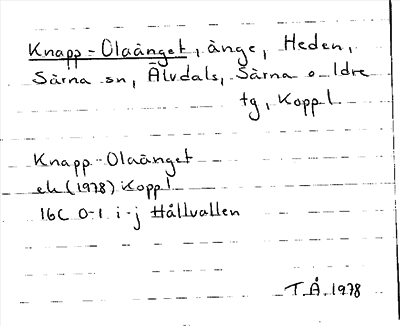 Knapp-Olaänget, änge, Heden,
Särna sn, Älvdals, Särna o Idre
tg, Kopp l
Knapp-Olaänget
ek (1978) Kopp l
16C 0-1 i-j Hållvallen
T.Å. 1978